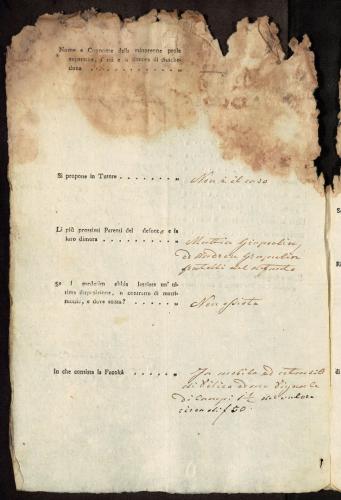 Nome e Cognome della minorenne prole
superstite, l'età e la dimora di ciasche-
duna . . . . . . . . . . . „
Si propone in Tutore . . . . . . . . „ Non è il caso
Li più prossimi Parenti del defonto, e la
loro dimora . . . . . . . . . . . „ Mattia
di Andrea
fratelli del defunto
Se i medesimi abbia lasciato un' ul-
tima disposizione, o contratto di matri-
monio, e dove esista? . . . . . . „ Non esiste
In che consista la Facoltà . . . . . „ In mobili ed utensili
di
di Campi 1 1/2 del valore
circa di f 50.